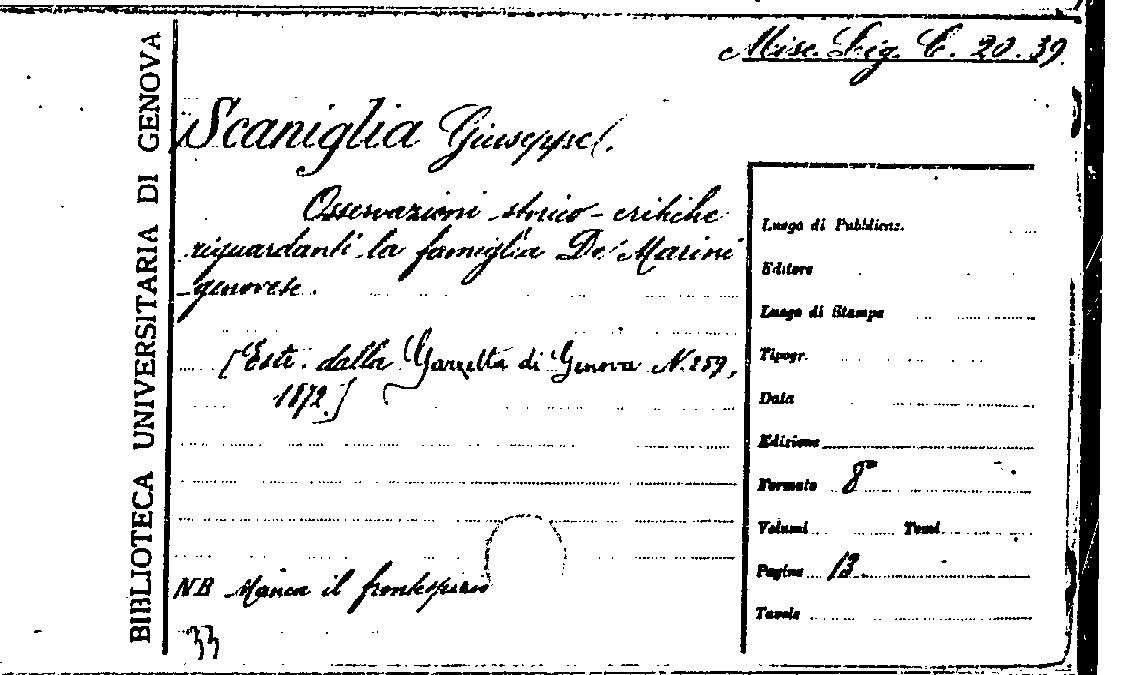 BIBLIOTECA UNIVERSITARIA DI GENOVA
Misc. Lig. C. 20. 39.
Scaniglia Giuseppe.
Osservazioni storico-critiche
riguardanti la famiglia De Marini
genovese.
[Estr. dalla Gazzetta di Genova N. 259,
1872.]
NB Manca il frontespizio
33
Luogo di Pubblicaz.
Editore
Luogo di Stampa
Tipogr.
Data
Edizione
Formato 8°
Volumi Tomi
Pagine 13
Tavole